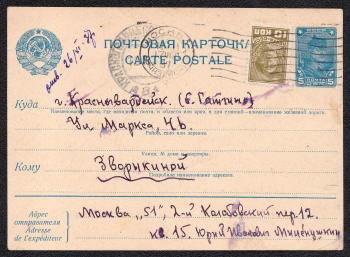 ПОЧТОВАЯ КАРТОЧКА
CARTE POSTALE
10 КОП
5
Куда
г. Красногвардейск. (б. Гатчино)
Наименование места, где находится почта, и области или края, а для станций — наименование железной дороги.
Ул. Маркса, 4б.
Район, село или деревня.
Улица, № дома и квартиры.
Кому
Зворыкиной
Подробное наименование адресата.
Адрес отправителя
Adresse de l'expéditeur
Москва „51", 2-й Колобовский пер. 12.
кв. 15. Юрий Иванович